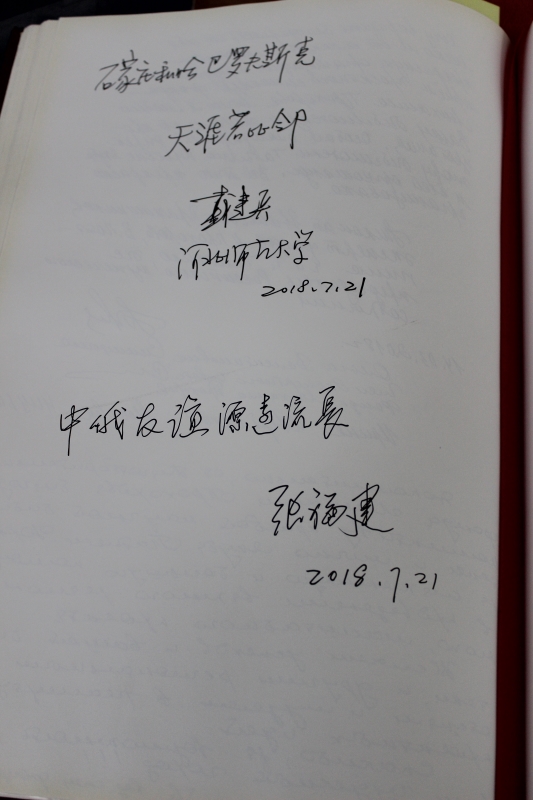 石家庄和哈巴罗夫斯克
天涯若比邻
戴建兵
河北师范大学
2018.7.21
中俄友谊源远流長
张福建
2018.7.21